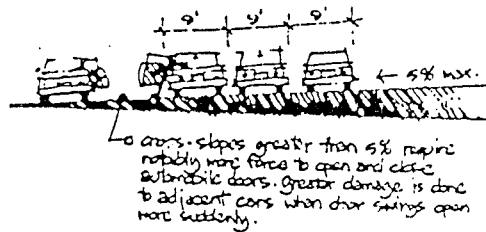 9' 9' 9'
← 5% max.
cross-slopes greater than 5% require
notably more force to open and close
automobile doors. greater damage is done
to adjacent cars when door swings open
more suddenly.